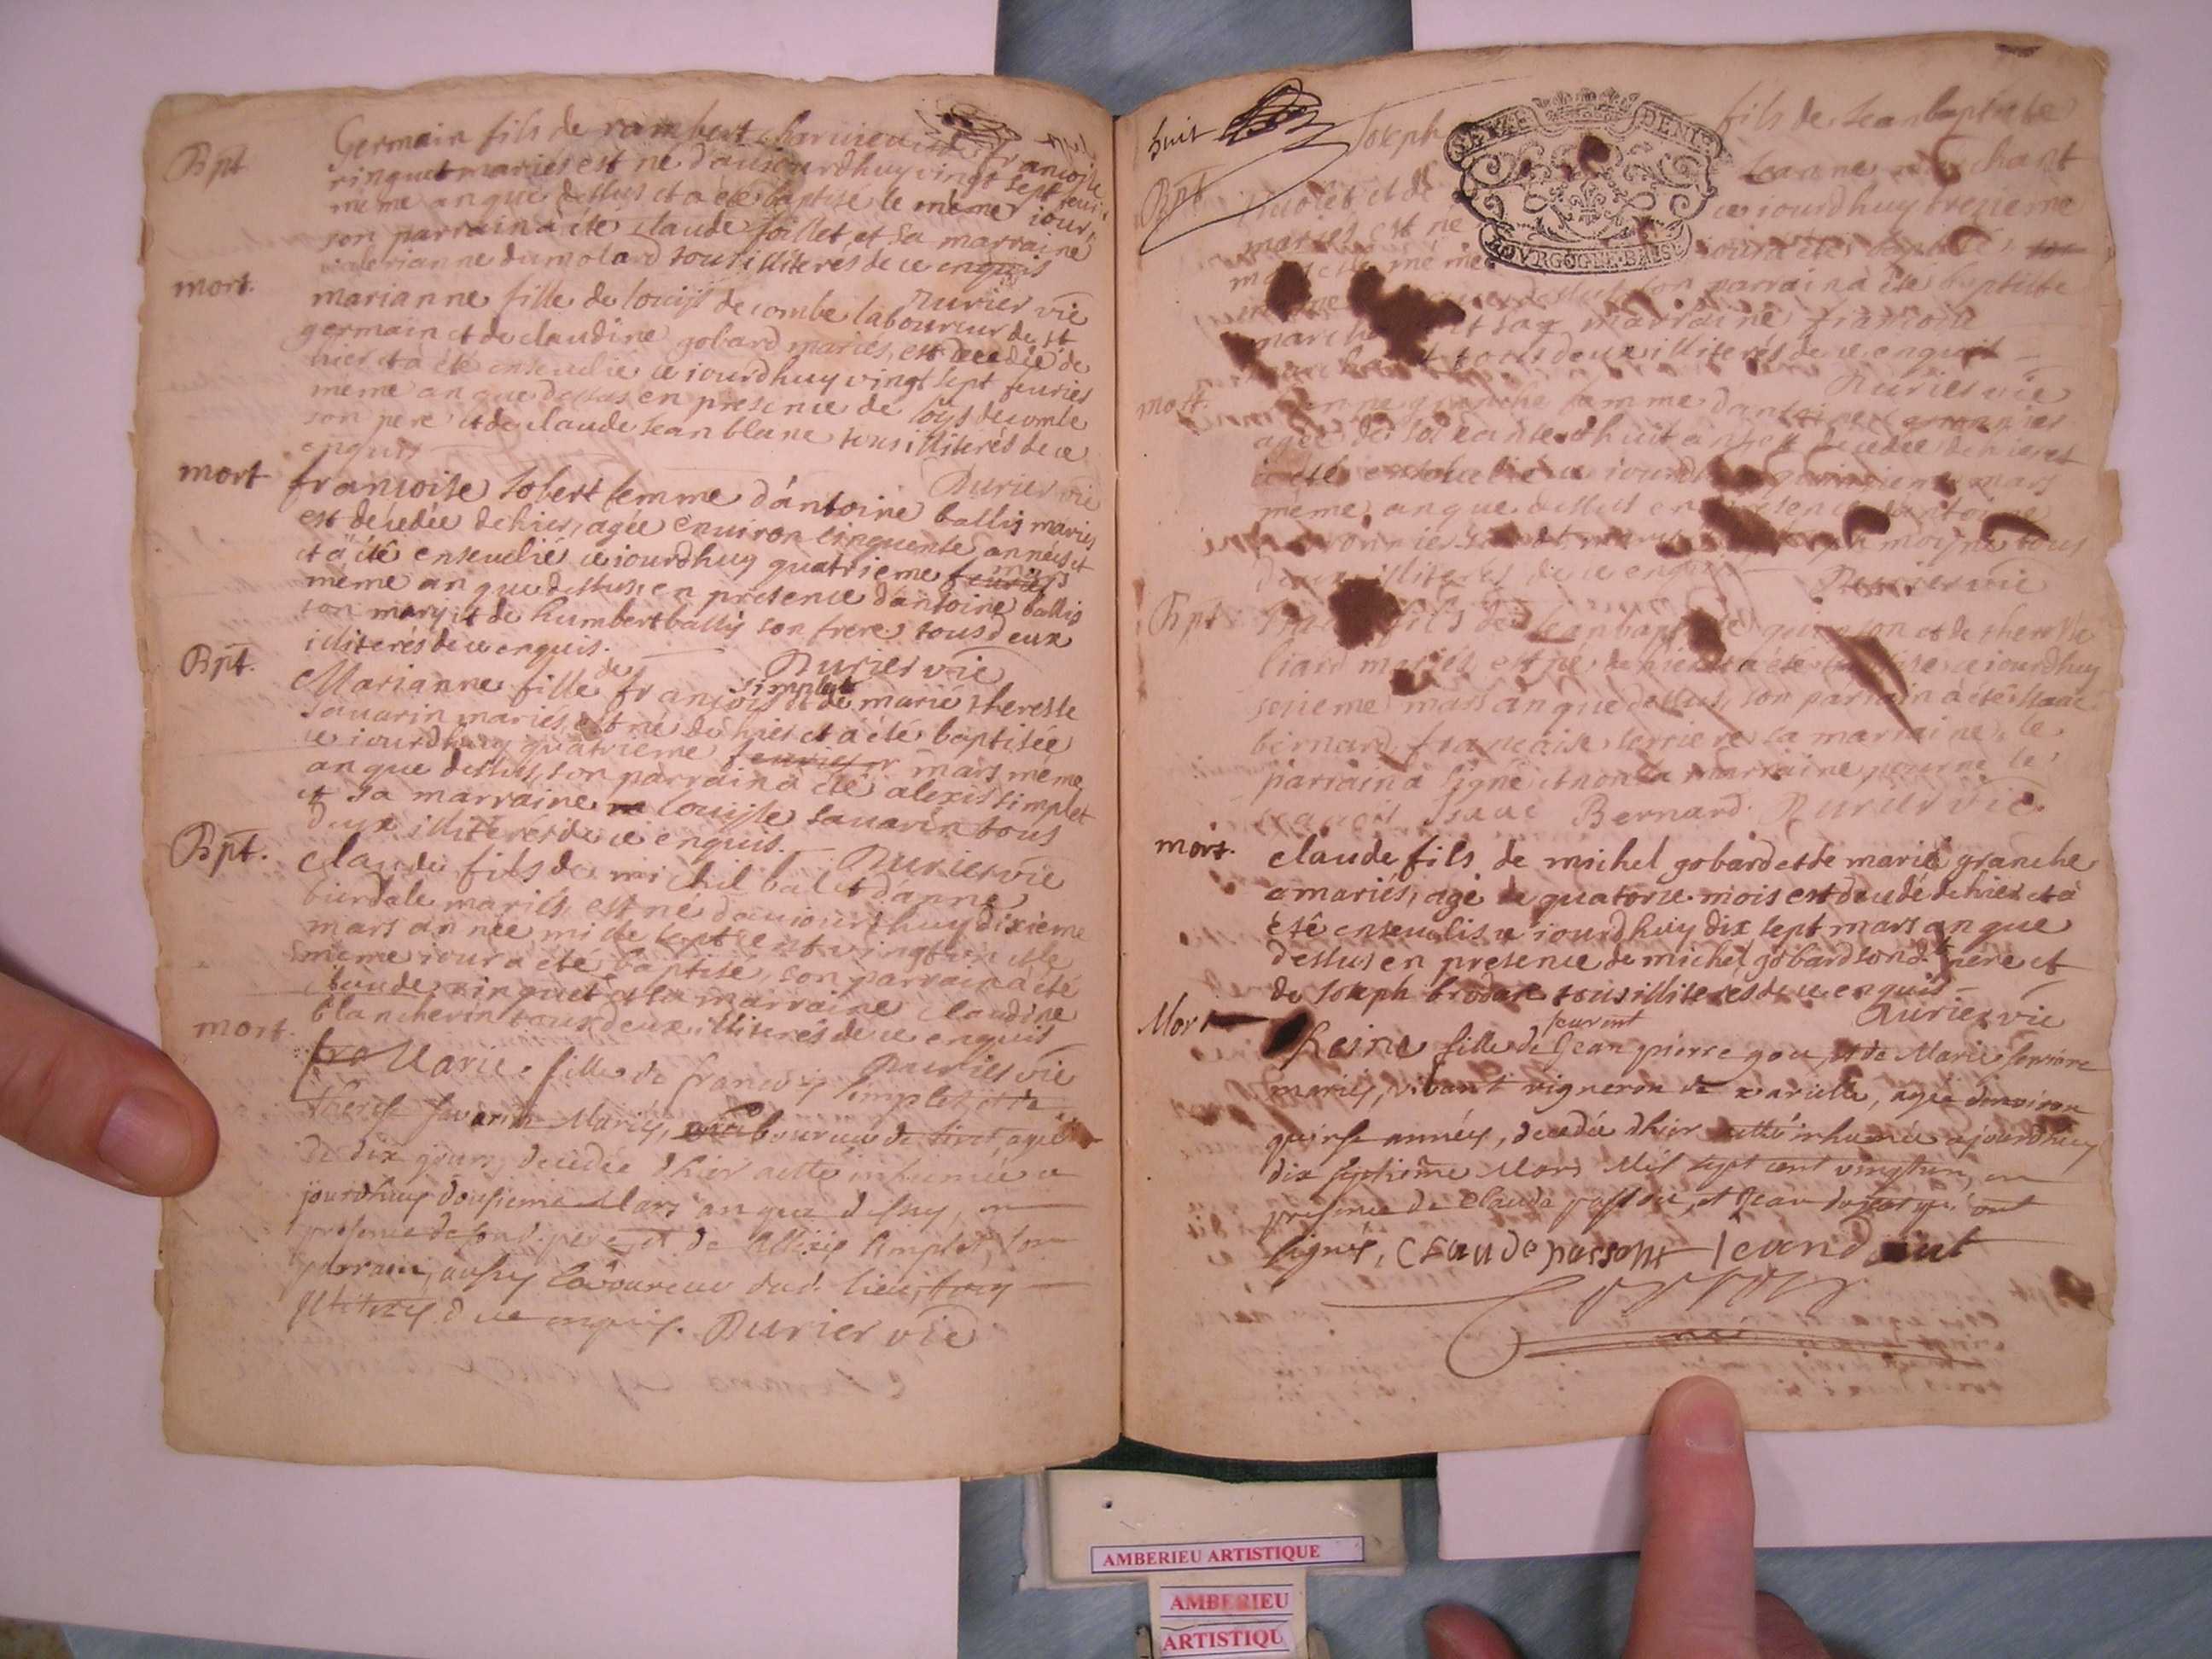 Bpt
Germain fils de rambert charvieu et de françoise
pinquet mariés est né d'auiourdhuy vingt sept feurier
meme an que dessus et a été baptisé le même iour,
son parrain a été claude foillet, et sa marraine
valerianne dumolard tous illiteres de ce enquis
Durier vic
mort.
marianne fille de louijs decombe laboureur de st
germain et de claudine gobard mariés, est decedée de
hier et a été enseuelie ce iourdhuy vingt sept feurier
meme an que dessus en presence de loijs decombe
son pere et de claude Jean blanc tous illiterés de ce
enquis
Durier vic
mort
françoise Jobert femme d'antoine ballis mariés
est décedée de hier, agée enuiron cinquante années et
et a été enseuelie ce iourdhuy quatrieme feurier mars
meme an que dessus, en presence d'antoine ballis
son mary et de humbert ballis son frere tous deux
illiterés de ce enquis.
Durier vic
Bpt.
Marianne fille de françois simplet et de marie theresse
sauarin mariés est né de hier et a été baptisée
ce iourdhuy quatrieme feurier mars même
an que dessus, son parrain a été alexis simplet
et sa marraine louijse sauarin tous
deux illiterés de ce enquis.
Durier vic
Bpt.
claude fils de michel balet d'anne
burdale mariés, est né d'auiourdhuy dixieme
mars année mile sept cent vingt un et le
même iour a été baptisé, son parrain a été
claude pinquet et la marraine claudine
blancherin tous deux illiterés de ce enquis
Durier vic
mort.
Marie fille de françois simplet, et de
Therese Savarin Mariés, laboureur de tiret, agée
de dix jours, decedée d'hier a etté inhumée ce
jourdhuy dousieme Mars an que dessus, en
presence de son d. pere, et de Allexis simplet, son
parrain, aussy laboureur dud. lieu, tous
illiterés de ce enquis. Durier vic
huit
Bpt
Joseph fils de Jean baptiste
et de Jeanne marchant
mariés est né ce iourdhuy treizieme
mars et le même iour a été baptisé,
dessus son parrain a été baptiste
marchant et sa marraine françoise
tous deux illiterés de ce enquis
Durier vic
mort.
granche famme d'antoine
agée de soixante et huit ans est decedée de hier et
a été enseuelie ce iourdhuy quinzieme mars
meme an que dessus en presence d'antoine
son d. mary moijne tous
deux illiterés de ce enquis
Durier vic
Bpt
fils de Jean baptiste et de theresse
liard mariés est né de hier et a été baptisé ce iourdhuy
seszieme mars an que dessus, son parrain a été Isaac
bernard, françoise serriere sa marraine, le
parrain a signé et non la marraine pour ne le
scauoir Isaac Bernard. Durier vic.
mort.
claude fils de michel gobard et de marie granche
mariés, agé de quatorze mois est decedé de hier et a
été enseuelis ce iourdhuy dix sept mars an que
dessus en presence de michel gobard son d. pere et
de Joseph brodan tous illiteres de ce enquis
Durier vic
Mort
Reine fille de Jean pierre gou, et de Marie
mariés, vivant vigneron de varielle, agée denviron
quinse années, decedée d'hier a etté inhumée ajourdhuy
dix septiême Mars Mil sept cent vingt un, en
presence de Claude passou, et Jean qui ont
signés, Claude passont
GATZE DENIE
BOVRGOGNE BRES
AMBERIEU ARTISTIQUE
AMBERIEU
ARTISTIQU